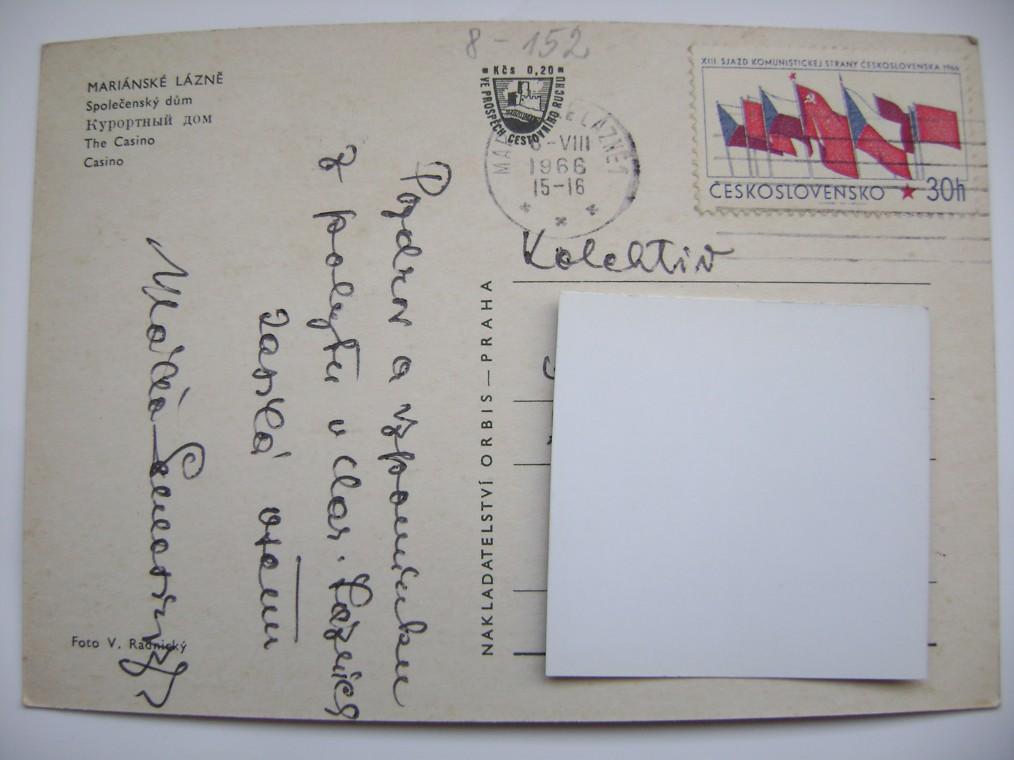 8-152
MARIÁNSKÉ LÁZNĚ
Společenský dům
Курортный дом
The Casino
Casino
Kčs 0,20
VE PROSPĚCH CESTOVNÍHO RUCHU
-VIII
1966
15-16
XIII. SJAZD KOMUNISTICKEJ STRANY ČESKOSLOVENSKA 1966
ČESKOSLOVENSKO 30h
Kolektiv
NAKLADATELSTVÍ ORBIS — PRAHA
Pozdrav a vzpomínku
z pobytu v Mar. Lázních
zasílá
Foto V. Radnický